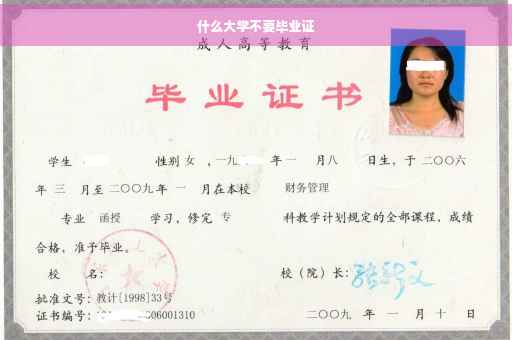 什么大学不要毕业证
成人高等教育
毕业证书
学生 性别 女 ,一九 年 一 月八 日生，于 二〇〇六
年 三 月至 二〇〇九 年 一 月在本校 财务管理
专业 函授 学习，修完 专 科教学计划规定的全部课程，成绩
合格，准予毕业。
校 名： 校（院）长：
批准文号：教计[1998]33号
证书编号： 06001310 二〇〇九 年 一 月 十 日